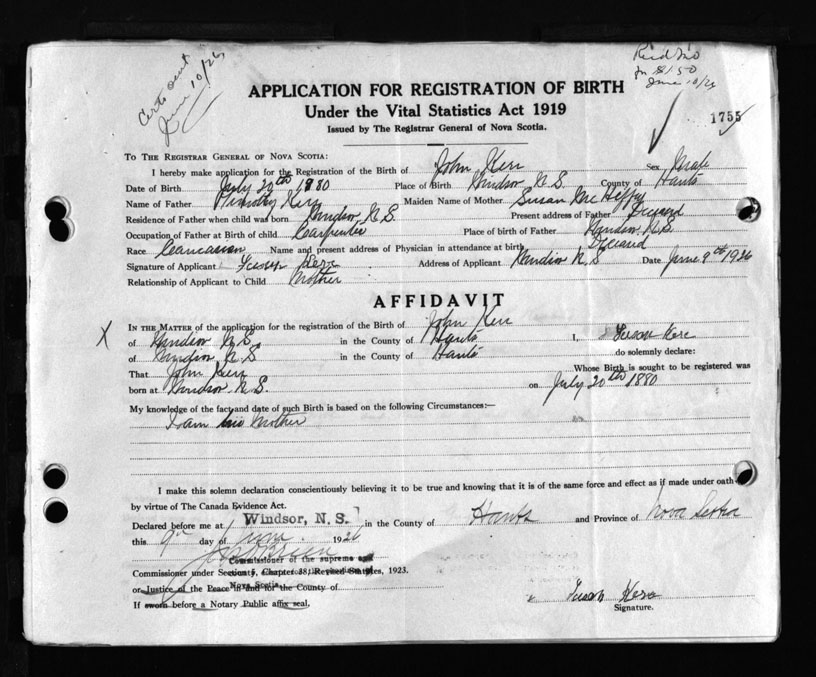 Certs sent
June 10/26
Rec'd
$1.50
June 10/26
APPLICATION FOR REGISTRATION OF BIRTH
Under the Vital Statistics Act 1919
Issued by The Registrar General of Nova Scotia.
1755
TO THE REGISTRAR GENERAL OF NOVA SCOTIA:
I hereby make application for the Registration of the Birth of John Kerr Sex Male
Date of Birth July 20th 1880 Place of Birth Windsor N.S. County of Hants
Name of Father Timothy Kerr Maiden Name of Mother Susan
Residence of Father when child was born Windsor N.S. Present address of Father Deceased
Occupation of Father at Birth of child Carpenter Place of birth of Father N.S.
Race Caucasian Name and present address of Physician in attendance at birth Deceased
Signature of Applicant Susan Kerr Address of Applicant Windsor N S Date June 9th 1926
Relationship of Applicant to Child Mother
AFFIDAVIT
X IN THE MATTER of the application for the registration of the Birth of John Kerr
of Windsor N.S. in the County of Hants I, Susan Kerr
of Windsor N.S in the County of Hants do solemnly declare:
That John Kerr Whose Birth is sought to be registered was
born at Windsor N.S. on July 20th 1880
My knowledge of the fact and date of such Birth is based on the following Circumstances:—
I am his Mother
I make this solemn declaration conscientiously believing it to be true and knowing that it is of the same force and effect as if made under oath
by virtue of The Canada Evidence Act.
Declared before me at Windsor, N. S. in the County of Hants and Province of Nova Scotia
this 9th day of June 1926
Commissioner of the supreme
Commissioner under Section 5, Chapter 38, Revised Statutes, 1923.
Nova Scotia
or Justice of the Peace in and for the County of
If sworn before a Notary Public affix seal.
Susan Kerr
Signature.